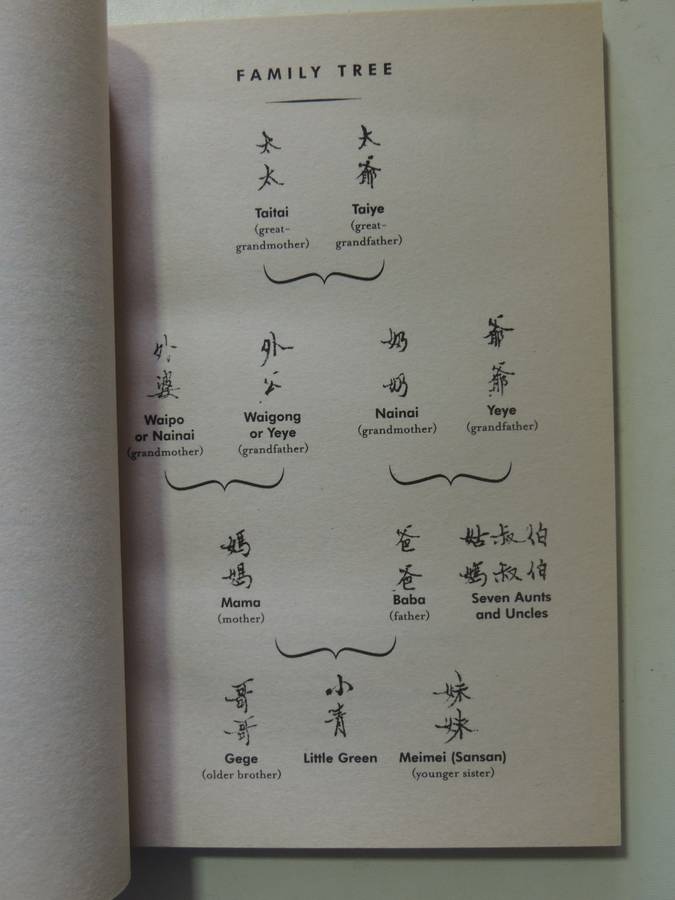 FAMILY TREE
太太
Taitai
(great-
grandmother)
太爺
Taiye
(great-
grandfather)
外婆
Waipo
or Nainai
(grandmother)
外公
Waigong
or Yeye
(grandfather)
奶奶
Nainai
(grandmother)
爺爺
Yeye
(grandfather)
媽媽
Mama
(mother)
爸爸
Baba
(father)
姑叔伯
媽叔伯
Seven Aunts
and Uncles
哥哥
Gege
(older brother)
小青
Little Green
妹妹
Meimei (Sansan)
(younger sister)